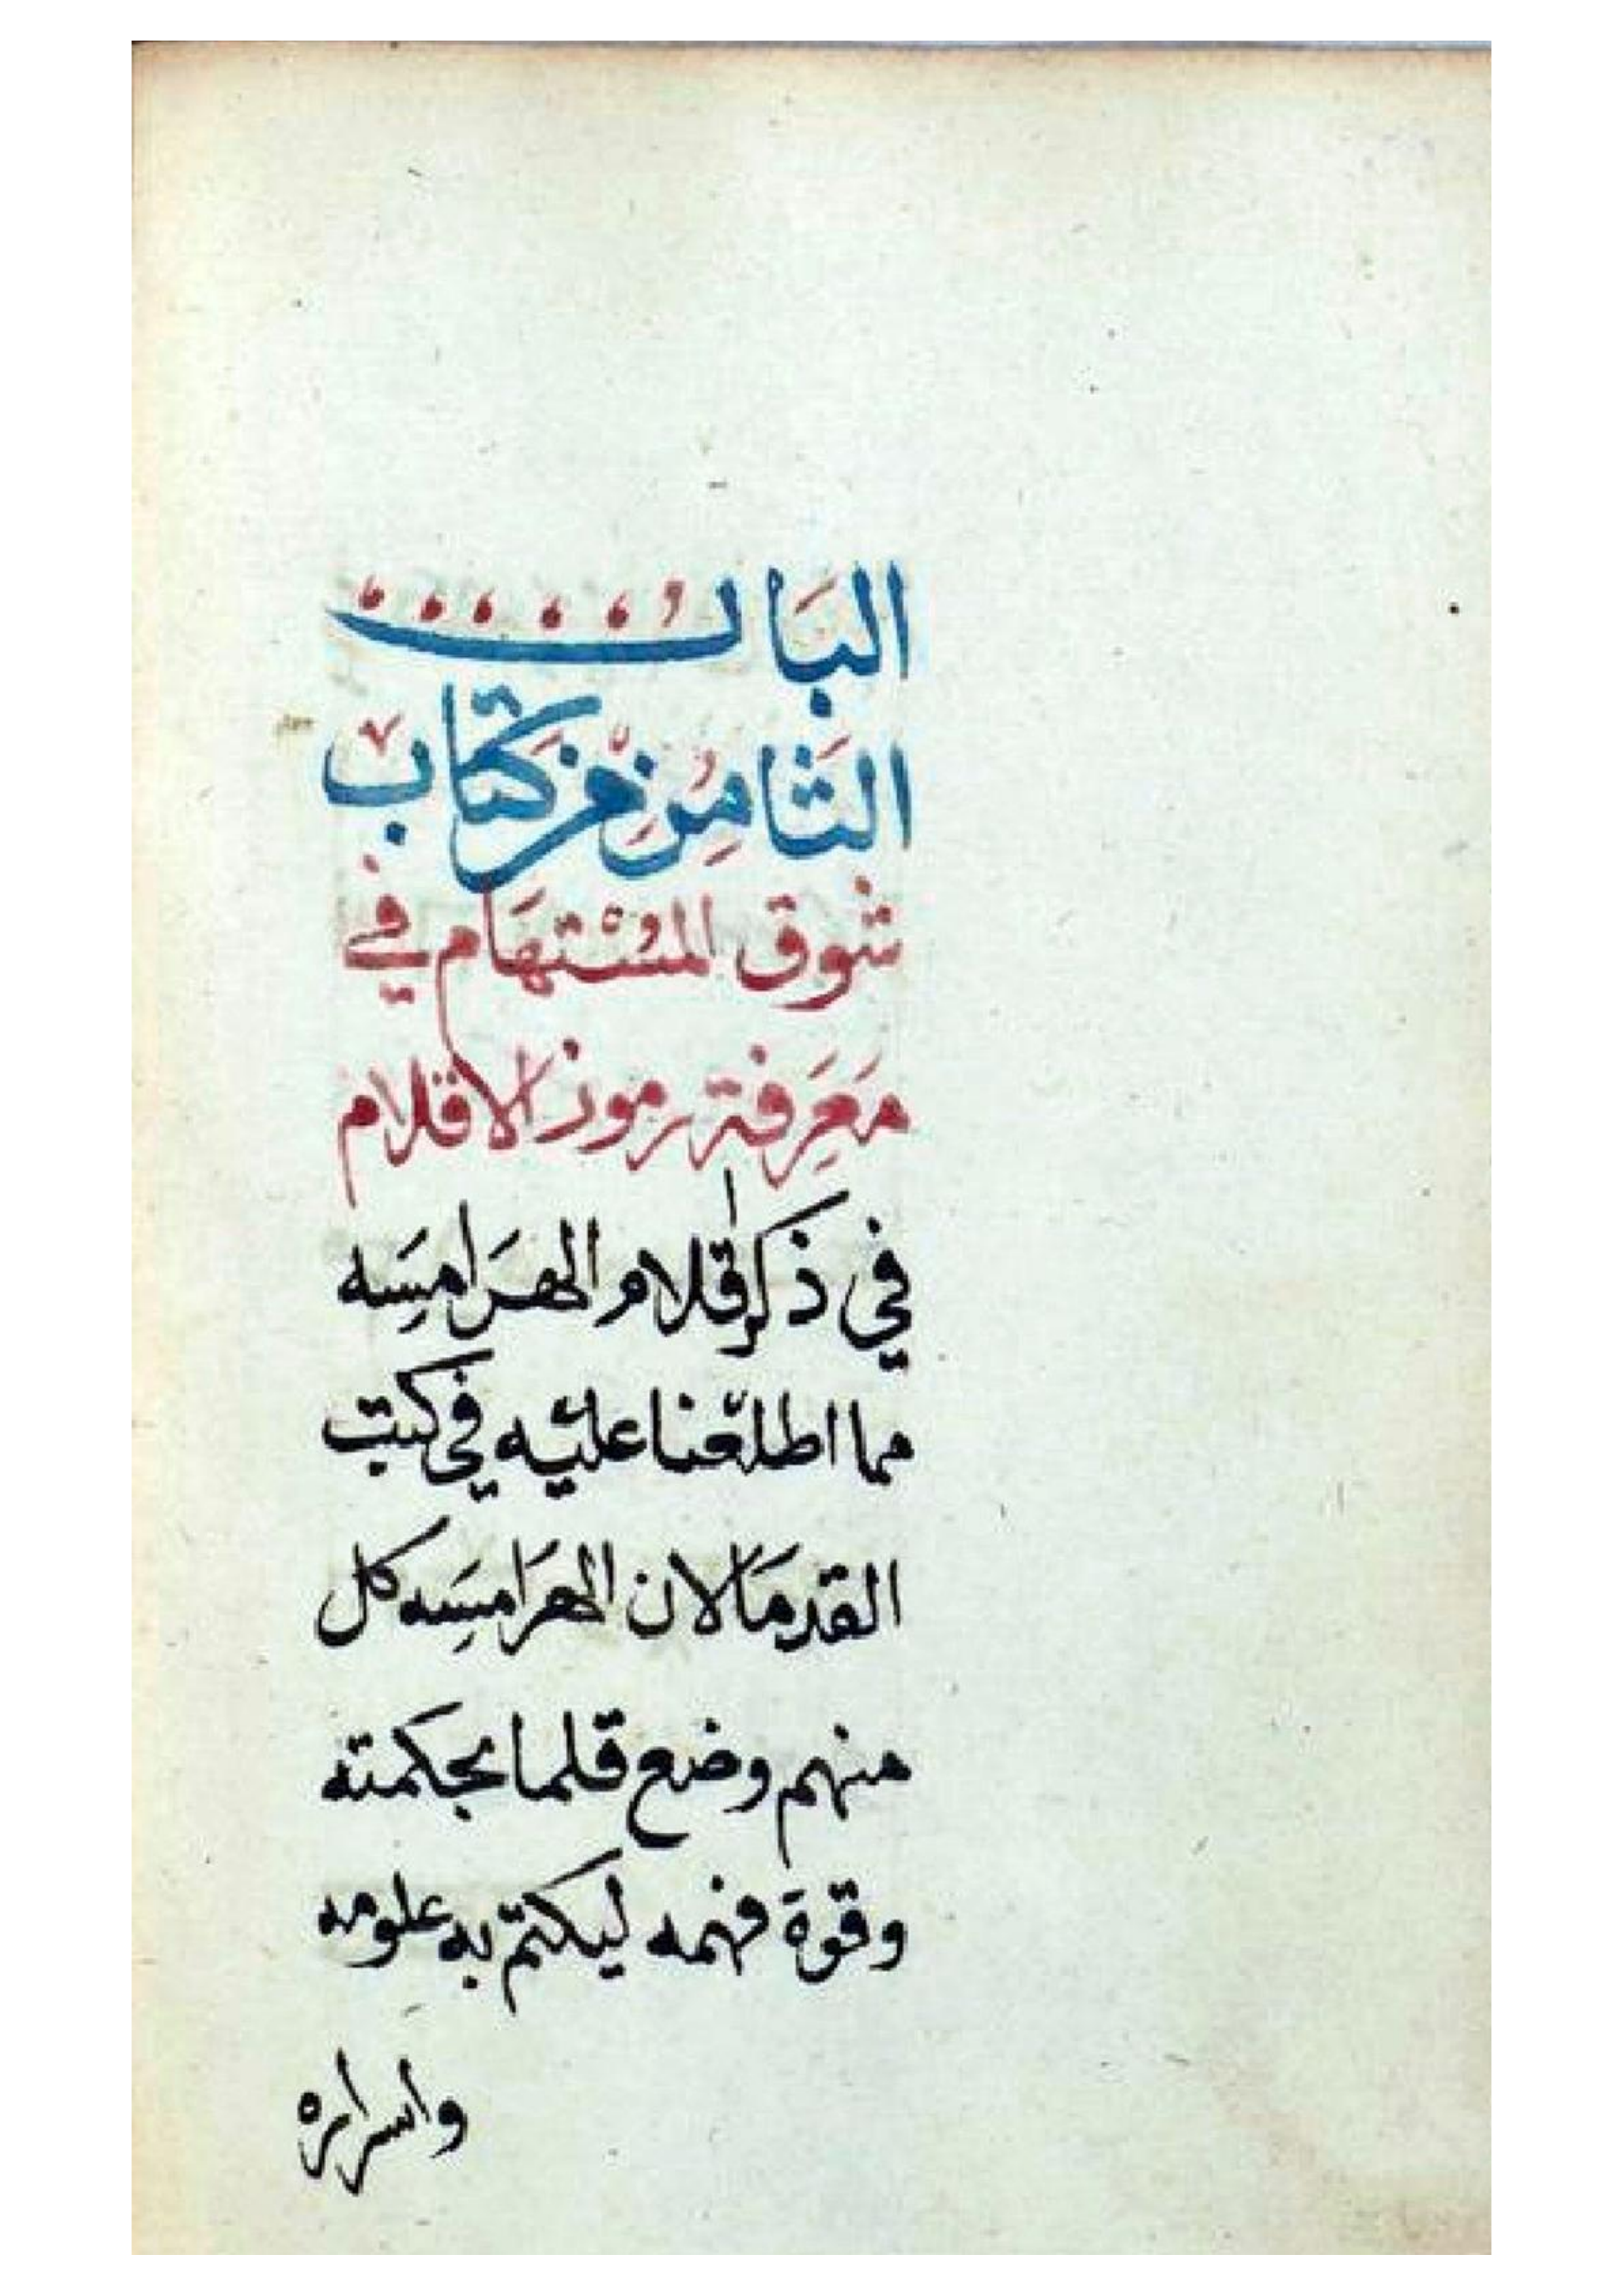 البَابُ
الثَامِنُ مِنْ كتَاب
شوق المُسْتهَام في
مَعَرِفة رموز الاقلام
في ذكر اقلام الهَرَامِسَه
مما اطلعْنا عليْه في كتب
القدمَا لان الهَرَامِسَه كل
منهم وضع قلما بحكمته
وقوة فهمه ليكتم به علومه
واسراره